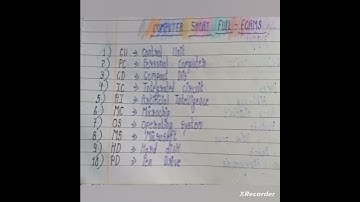 COMPUTER SHORT FULL - FORMS
1) CU → Control Unit
2) PC → Personal Computer
3) CD → Compact Disc
4) IC → Integrated Circuit
5) AI → Artificial Intelligence
6) MC → Microchip
7) OS → Operating System
8) MS → Microsoft
9) HD → Hard disk
10) PD → Pen Drive
XRecorder